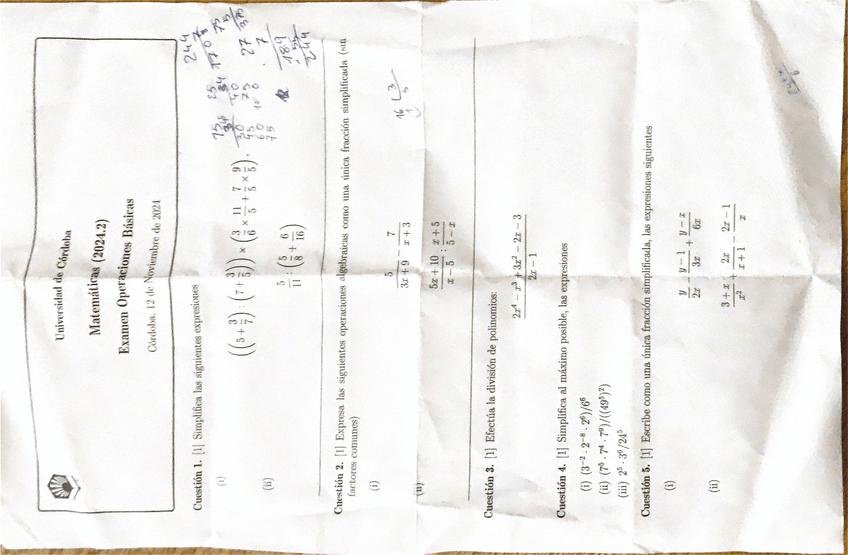 Universidad de Córdoba
Matemáticas (2024.2)
Examen Operaciones Básicas
Córdoba, 12 de Noviembre de 2024
Cuestión 1. [1] Simplifica las siguientes expresiones
(i) ((5 + 3/7) : (7 + 3/5)) × (3/6 × 11/5 + 7/5 × 9/5).
(ii) 5/11 : (5/8 + 6/16)
Cuestión 2. [1] Expresa las siguientes operaciones algebraicas como una única fracción simplificada (sin
factores comunes)
(i) 5/(3x + 9) − 7/(x + 3)
(ii) (5x + 10)/(x − 5) : (x + 5)/(5 − x)
Cuestión 3. [1] Efectúa la división de polinomios:
(2x⁴ − x³ + 3x² − 2x − 3)/(2x − 1)
Cuestión 4. [1] Simplifica al máximo posible, las expresiones
(i) (3⁻² · 2⁻⁸ · 2⁶)/6⁶
(iii) 2⁵ · 3⁶/24⁵
Cuestión 5. [1] Escribe como una única fracción simplificada, las expresiones siguientes
(i) y/2x − (y − 1)/3x + (y − x)/6x
(ii) (3 + x)/x² + 2x/(x + 1) − (2x − 1)/x